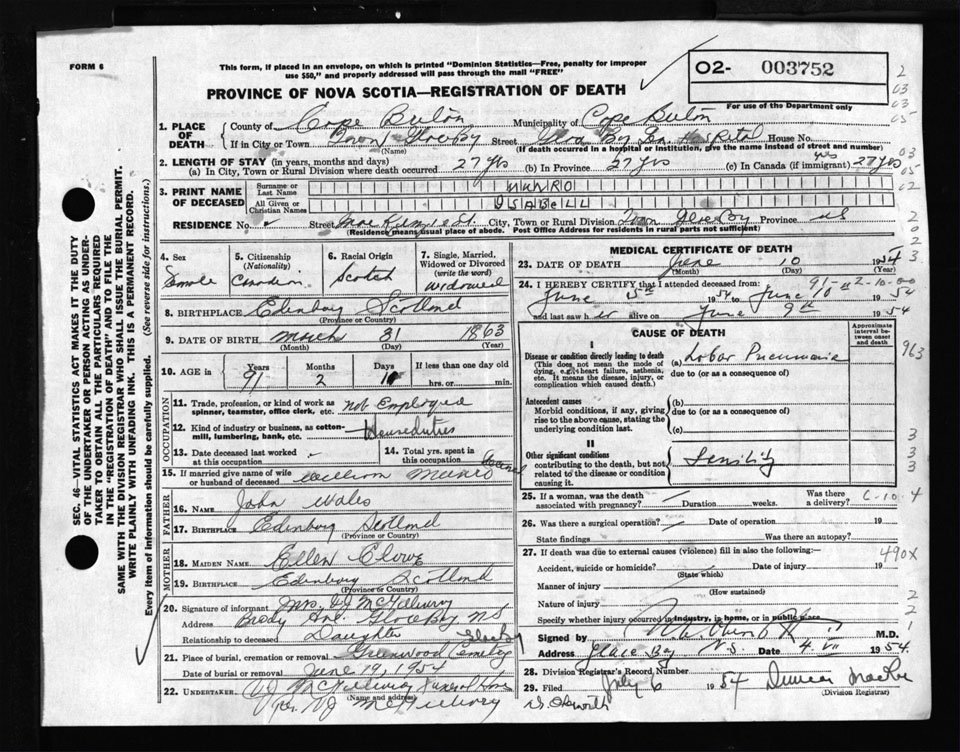 FORM 6
This form, if placed in an envelope, on which is printed "Dominion Statistics—Free, penalty for improper
use $50," and properly addressed will pass through the mail "FREE"
PROVINCE OF NOVA SCOTIA—REGISTRATION OF DEATH
O2- 003752
For use of the Department only
1. PLACE OF DEATH
County of Cape Breton Municipality of Cape Breton
If in City or Town Town Glace Bay Street Glace Bay Gen Hospital House No.
(Name) (If death occurred in a hospital or institution, give the name instead of street and number)
2. LENGTH OF STAY (in years, months and days)
(a) In City, Town or Rural Division where death occurred 27 yrs (b) In Province 27 yrs (c) In Canada (if immigrant) 27 yrs
yrs
3. PRINT NAME OF DECEASED
Surname or Last Name MUNRO
All Given or Christian Names ISABELL
RESIDENCE No. Street City, Town or Rural Division Town Glace Bay Province NS
(Residence means usual place of abode. Post Office Address for residents in rural parts not sufficient)
4. Sex Female
5. Citizenship (Nationality) Canadian
6. Racial Origin Scotch
7. Single, Married, Widowed or Divorced (write the word) Widowed
8. BIRTHPLACE Edinbory Scotland
(Province or Country)
9. DATE OF BIRTH March 31 1863
(Month) (Day) (Year)
10. AGE in Years 91 Months 2 Days 10 If less than one day
hrs. or min.
OCCUPATION
11. Trade, profession, or kind of work as spinner, teamster, office clerk, etc. Not Employed
12. Kind of industry or business, as cotton-mill, lumbering, bank, etc. Houseduties
13. Date deceased last worked at this occupation
14. Total yrs. spent in this occupation
15. If married give name of wife or husband of deceased William Munro
FATHER
16. Name John Wales
17. Birthplace Edinbory Scotland
(Province or Country)
MOTHER
18. MAIDEN NAME Ellen
19. BIRTHPLACE Edinbory Scotland
(Province or Country)
20. Signature of informant Mrs. DJ McGillivury
Address Ave. Glace Bay NS
Relationship to deceased Daughter
21. Place of burial, cremation or removal Greenwood Cemetery Glace Bay
Date of burial or removal June 19, 1954
22. UNDERTAKER VJ McGillivury Funeral Home
(Name and address)
Per. VJ McGillivury
MEDICAL CERTIFICATE OF DEATH
23. DATE OF DEATH June 10 1954
(Month) (Day) (Year)
24. I HEREBY CERTIFY that I attended deceased from:
June 5th 1954 to June 9/10 1954
91-2-10-00
and last saw her alive on June 9th 1954
CAUSE OF DEATH
Approximate interval between onset and death
I
Disease or condition directly leading to death (a) Lobar Pneumonia
(This does not mean the mode of dying, e.g., heart failure, asthenia, etc. It means the disease, injury, or complication which caused death.)
due to (or as a consequence of)
Antecedent causes (b)
Morbid conditions, if any, giving rise to the above cause, stating the underlying condition last.
due to (or as a consequence of)
(c)
II
Other significant conditions
contributing to the death, but not related to the disease or condition causing it.
Senility
25. If a woman, was the death associated with pregnancy? Duration weeks. Was there a delivery?
C-10-4
26. Was there a surgical operation? Date of operation 19
State findings Was there an autopsy?
27. If death was due to external causes (violence) fill in also the following:—
490X
Accident, suicide or homicide? Date of injury 19
(State which)
Manner of injury
(How sustained)
Nature of injury
Specify whether injury occurred in industry, in home, or in public place
Signed by M.D.
Address Glace Bay N.S. Date 4 VII 1954
28. Division Registrar's Record Number
29. Filed July 6 1954 Duncan
(Division Registrar)
963
SEC. 46—VITAL STATISTICS ACT MAKES IT THE DUTY
OF THE UNDERTAKER OR PERSON ACTING AS UNDER-
TAKER TO OBTAIN ALL THE PARTICULARS REQUIRED
IN THE "REGISTRATION OF DEATH" AND TO FILE THE
SAME WITH THE DIVISION REGISTRAR WHO SHALL ISSUE THE BURIAL PERMIT.
WRITE PLAINLY WITH UNFADING INK. THIS IS A PERMANENT RECORD.
Every item of information should be carefully supplied. (See reverse side for instructions.)